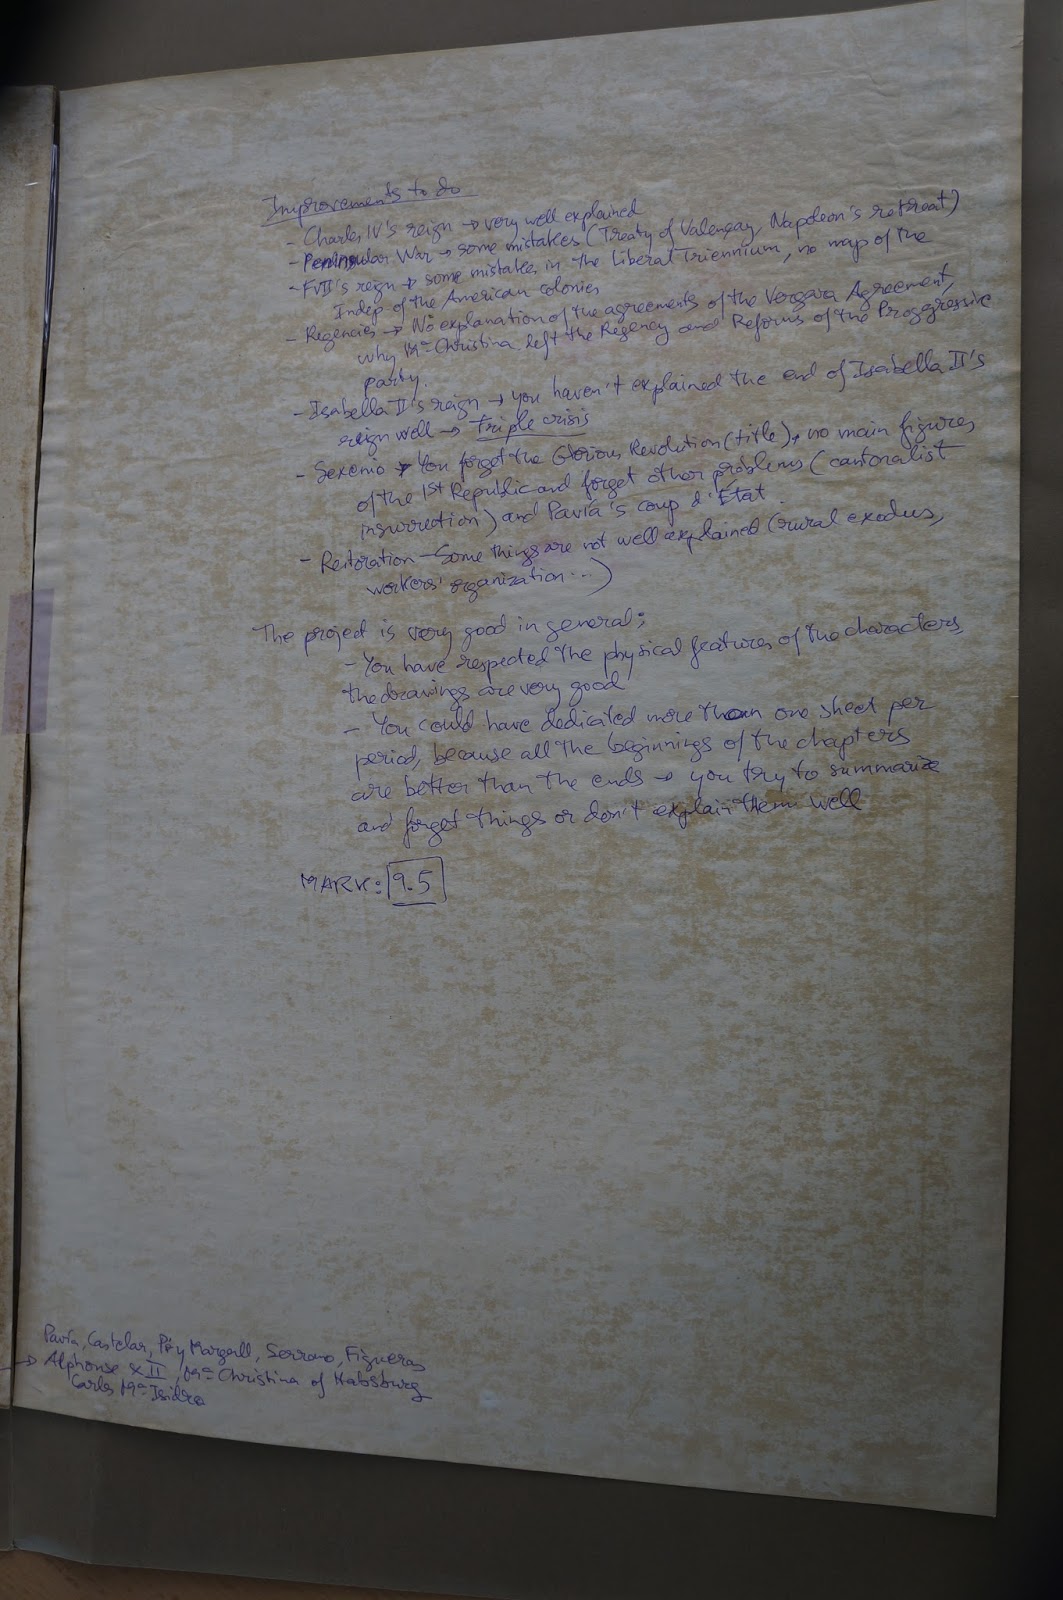 Improvements to do
- Charles IV's reign → very well explained
- Peninsular War → some mistakes (Treaty of Valençay, Napoleon's retreat)
- FVII's reign → some mistakes in the Liberal Triennium, no map of the
Indep of the American colonies
- Regencies → No explanation of the agreements of the Vergara Agreement,
why Mª Christina left the Regency and Reforms of the Proggressive
party.
- Isabella II's reign → you haven't explained the end of Isabella II's
reign well → triple crisis
- Sexenio → You forget the Glorious Revolution (title), no main figures
of the 1st Republic and forget other problems (cantonalist
insurrection) and Pavía's coup d'État.
- Restoration - Some things are not well explained (rural exodus,
workers' organization...)
The project is very good in general;
- You have respected the physical features of the characters,
the drawings are very good
- You could have dedicated more than one sheet per
period, because all the beginnings of the chapters
are better than the ends → you try to summarize
and forget things or don't explain them well
MARK: 9.5
Pavía, Castelar, Pi y Margall, Serrano, Figueras
→ Alphonse XII, Mª Christina of Habsburg
Carlos Mª Isidro